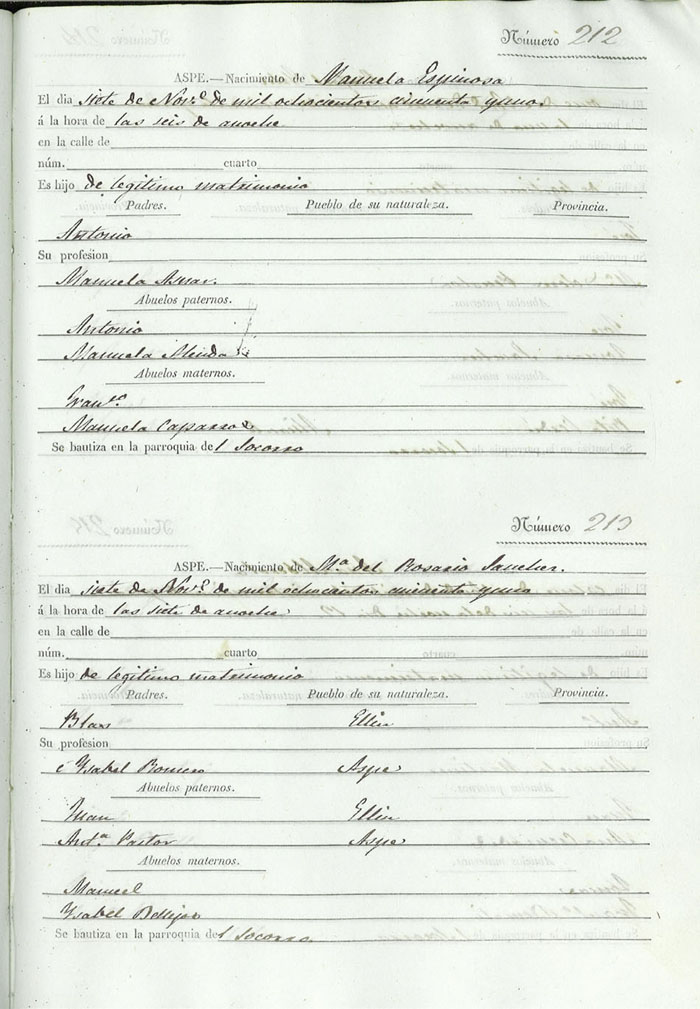 Número 212
ASPE.—Nacimiento de Manuela Espinosa
El dia siete de Nov.e de mil ochocientos cincuenta y uno.
á la hora de las seis de anoche
en la calle de
núm. cuarto
Es hijo de legitimo matrimonio
Padres. Pueblo de su naturaleza. Provincia.
Antonio
Su profesion
Manuela Asnar.
Abuelos paternos.
Antonio
Manuela
Abuelos maternos.
Fran.co
Manuela Caparros
Se bautiza en la parroquia del Socorro
Número 213
ASPE.—Nacimiento de M.a del Rosario Sanchez.
El dia siete de Nov.e de mil ochocientos cincuenta y uno
á la hora de las siete de anoche
en la calle de
núm. cuarto
Es hijo de legitimo matrimonio
Padres. Pueblo de su naturaleza. Provincia.
Blas Ellin
Su profesion
Ysabel Romero Aspe
Abuelos paternos.
Juan Ellin
Ant.a Pastor Aspe
Abuelos maternos.
Manuel
Ysabel
Se bautiza en la parroquia del Socorro.